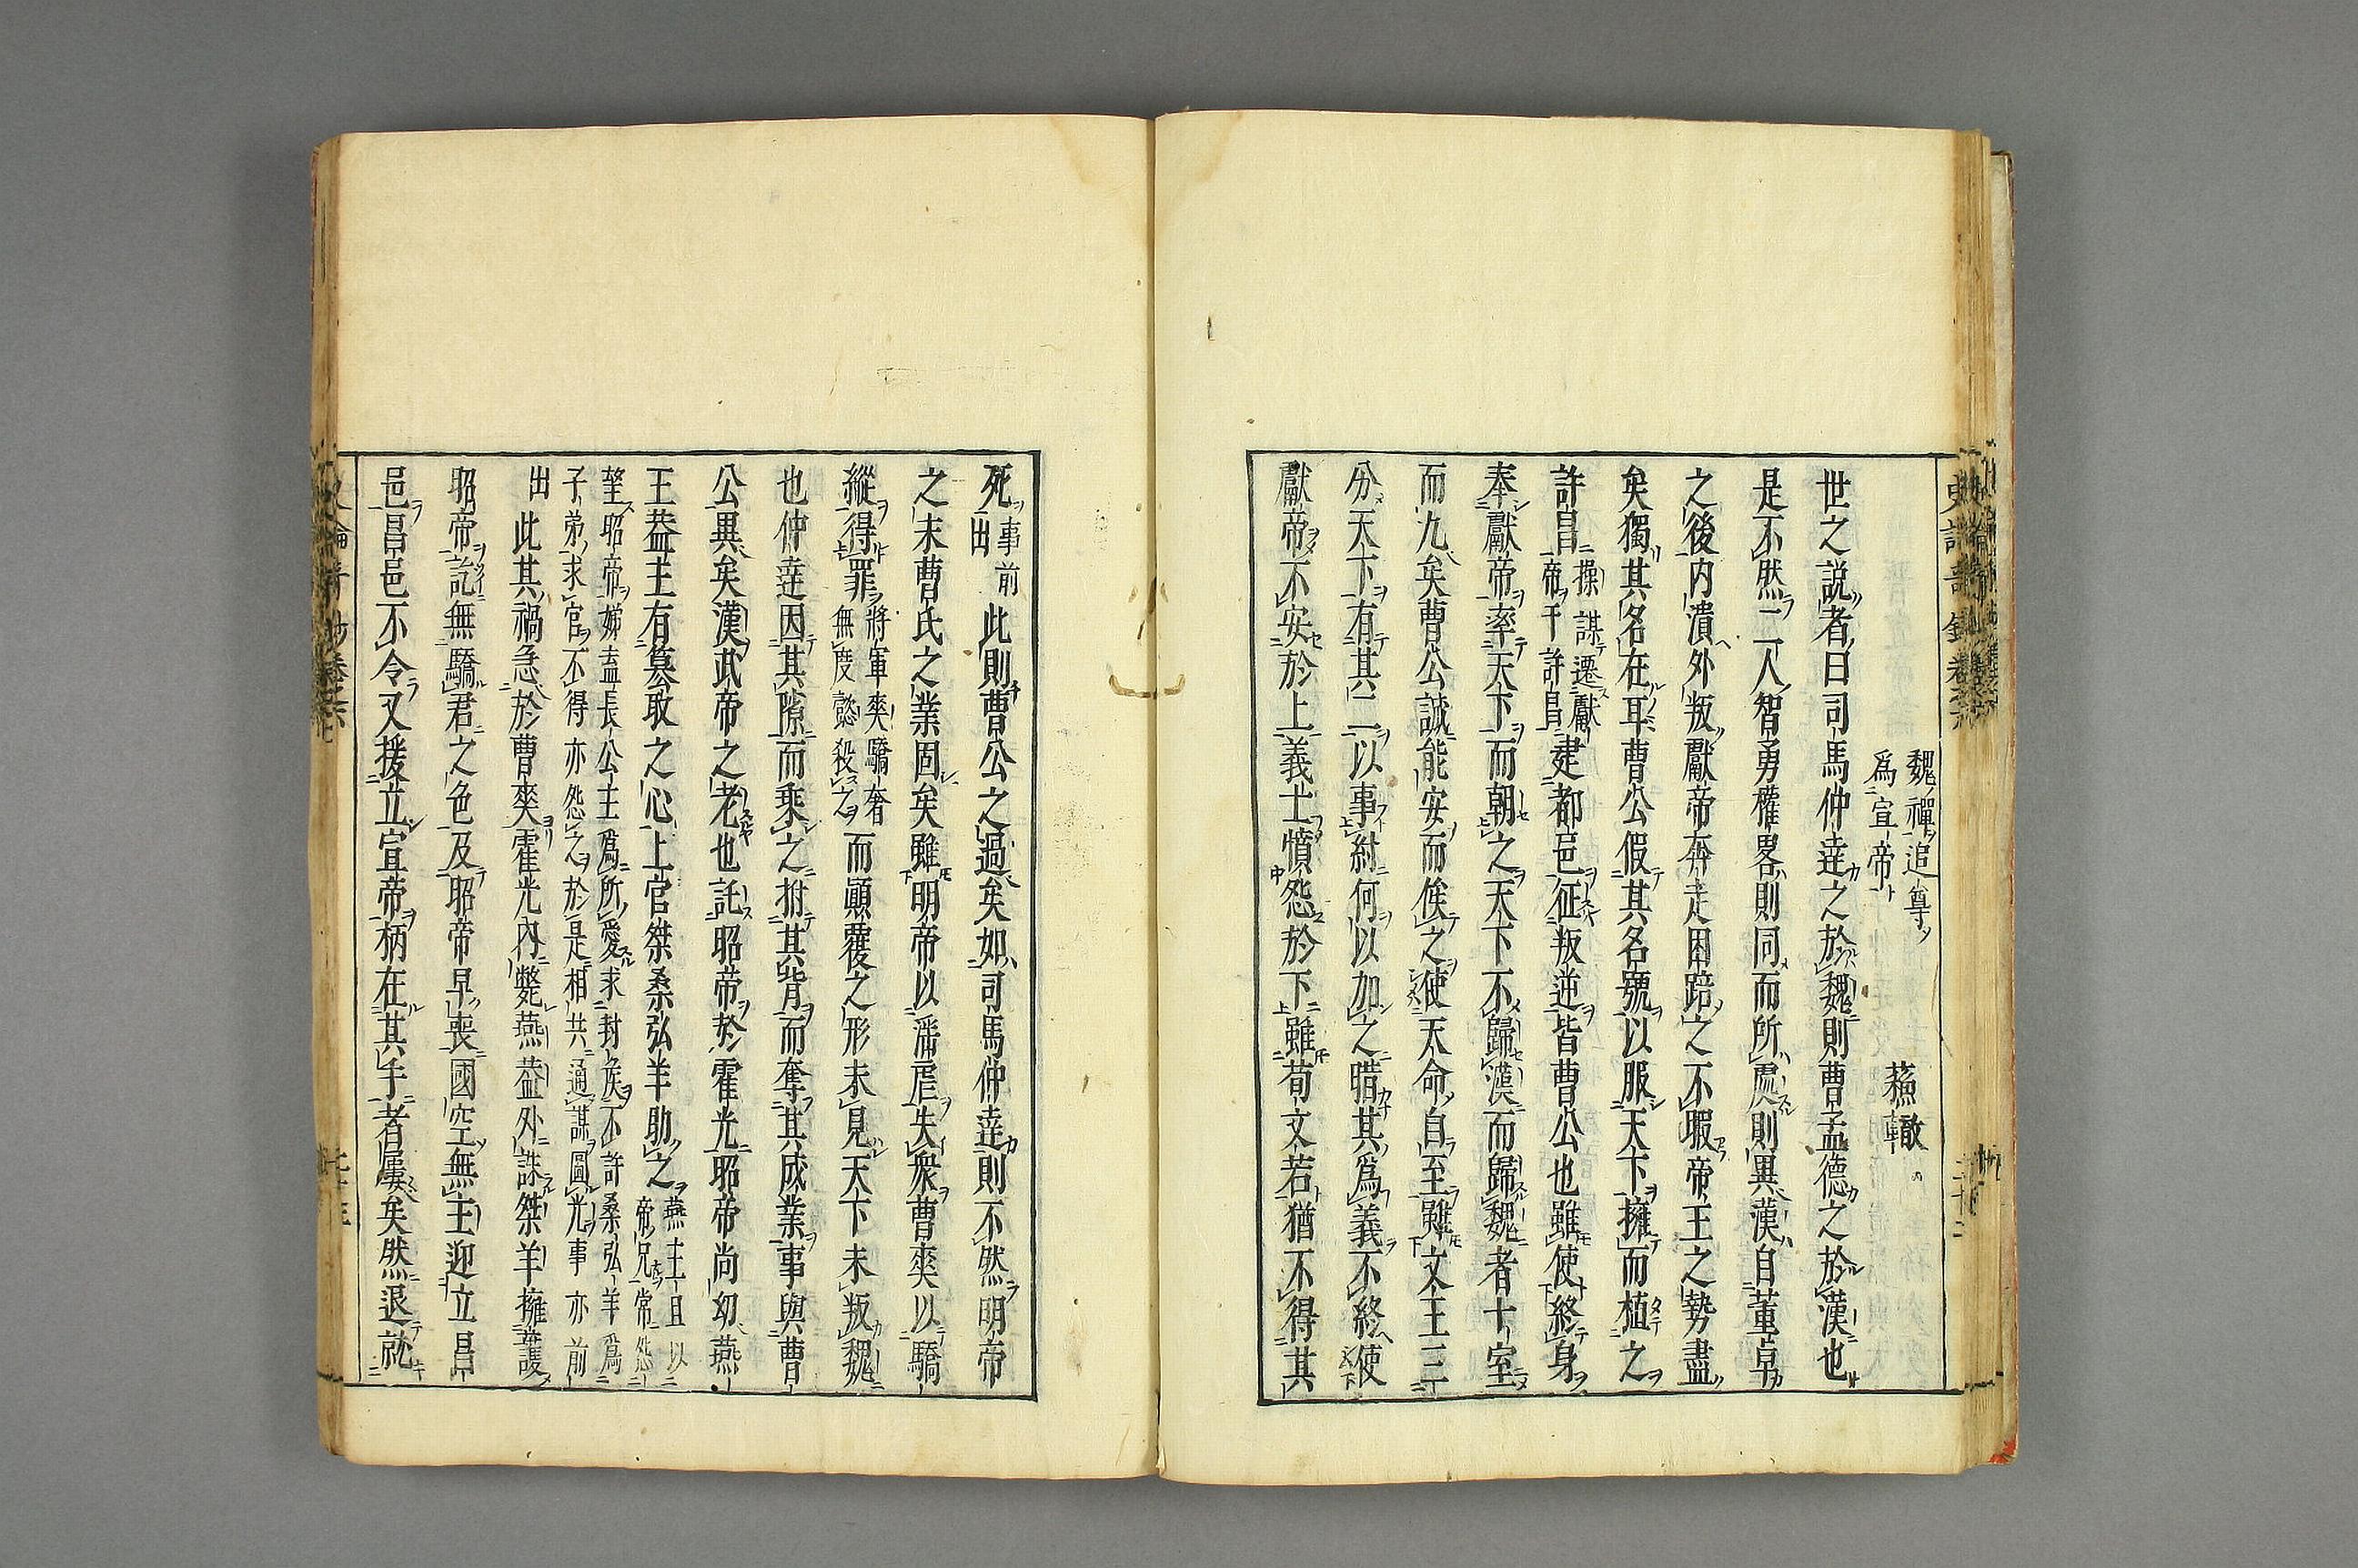 魏禪追尊
爲宣帝
蘇轍
世之說者曰司馬仲達之於魏則曹孟德之於漢也
是不然二人智勇權畧則同而所處則異漢自董卓
之後内潰外叛獻帝奔走困踣之不暇帝王之勢盡
矣獨其名在耳曹公假其名號以服天下擁而植之
許昌
操謀遷獻
帝于許昌
建都邑征叛逆皆曹公也雖使終身
奉獻帝率天下而朝之天下不歸漢而歸魏者十室
而九矣曹公誠能安而俟之使天命自至雖文王三
分天下有其二以事紂何以加之惜其爲義不終使
獻帝不安於上義士憤怨於下雖荀文若猶不得其
死
事前
出
此則曹公之過矣如司馬仲達則不然明帝
之末曹氏之業固矣雖明帝以滛虐失衆曹爽以驕
縱得罪
將軍爽驕奢
無度懿殺之
而顚覆之形未見天下未叛魏
也仲達因其隙而乗之拊其背而奪其成業事與曹
公異矣漢武帝之老也託昭帝於霍光昭帝尚幼燕
王葢主有簒取之心上官桀桑弘羊助之
燕王旦以
帝兄常怨
望昭帝姊盍長公主爲所愛求封侯不許桑弘羊爲
子弟求官不得亦怨之於是相共通謀圖光事亦前
出
此其禍急於曹爽霍光内斃燕葢外誅桀羊擁護
昭帝訖無驕君之色及昭帝早喪國空無主迎立昌
邑昌邑不令又援立宣帝柄在其手者屢矣然退就